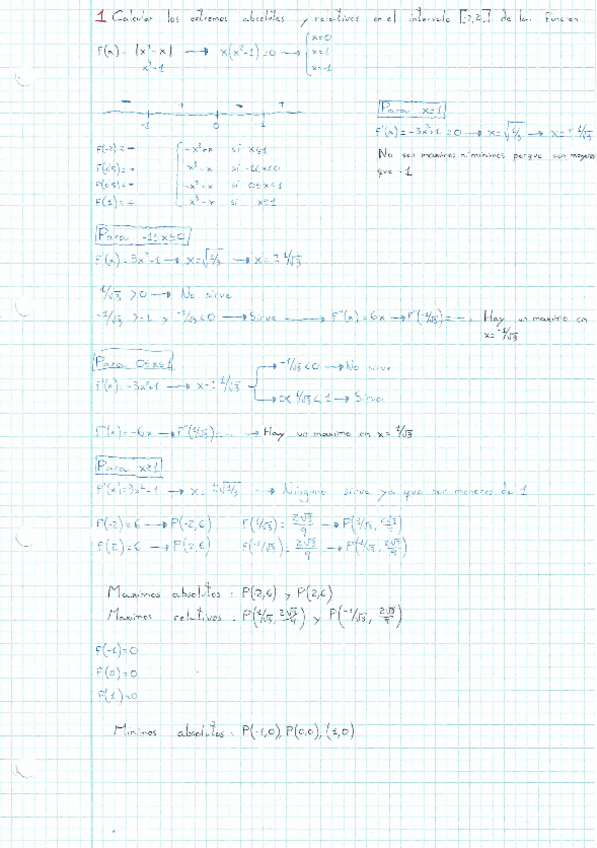 1 Calcular los extremos absolutos y relativos en el intervalo [-2,2] de la función
F(x) = |x³-x| → x(x²-1)=0 → { x=0
x³-1 x=1
x=-1
- + - +
-1 0 1
F(-2) = - { -x³+x si x≤1
x³-x si -1≤x<0
-x³+x si 0≤x<1
F(2) = + x³-x si x≥1
Para x≤1
F'(x) = -3x²+1 = 0 → x=√1/3 → x=±1/√3
No son maximos ni minimos porque son mayores
que -1
Para -1≤x≤0
F'(x) = 3x²-1 → x=√1/3 → x=±1/√3
1/√3 >0 → No sirve
-1/√3 > -1 y -1/√3 <0 → Sirve → F''(x)=6x → F''(-1/√3) = - , Hay un maximo en
x=-1/√3
Para 0≤x≤1
F'(x) = -3x²+1 → x=±1/√3 → -1/√3 <0 → No sirve
→ 0< 1/√3 <1 → Sirve
F''(x) = -6x → F''(1/√3) = - → Hay un maximo en x=1/√3
Para x≥1
F'(x)=3x²-1 → x=±√1/3 → Ninguno sirve ya que son menores de 1
F(-2)=6 → P(-2,6) F(1/√3) = 2√3/9 → P(1/√3, 2√3/9)
F(2)=6 → P(2,6) F(-1/√3) = 2√3/9 → P(-1/√3, 2√3/9)
Maximos absolutos: P(2,6) y P(2,6)
Maximos relativos: P(1/√3, 2√3/9) y P(-1/√3, 2√3/9)
F(-1)=0
F(0)=0
F(1)=0
Minimos absolutos: P(-1,0), P(0,0), (1,0)